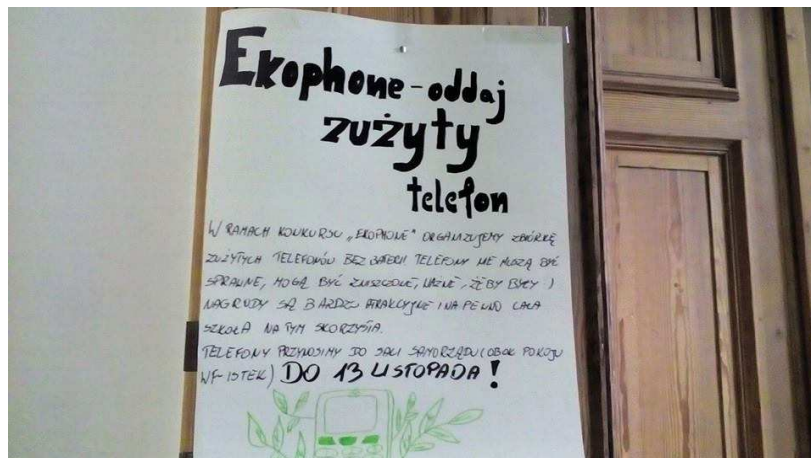 Ekophone - oddaj
zużyty
telefon
W RAMACH KONKURSU „EKOPHONE" ORGANIZUJEMY ZBIÓRKĘ
ZUŻYTYCH TELEFONÓW BEZ BATERII TELEFONY NIE MUSZĄ BYĆ
SPRAWNE, MOGĄ BYĆ ZNISZCZONE, WAŻNE, ŻEBY BYŁY )
NAGRODY SĄ BARDZO ATRAKCYJNE I NA PEWNO CAŁA
SZKOŁA NA TYM SKORZYSTA.
TELEFONY PRZYNOSIMY DO SALI SAMORZĄDU (OBOK POKOJU
WF-ISTEK) DO 13 LISTOPADA!